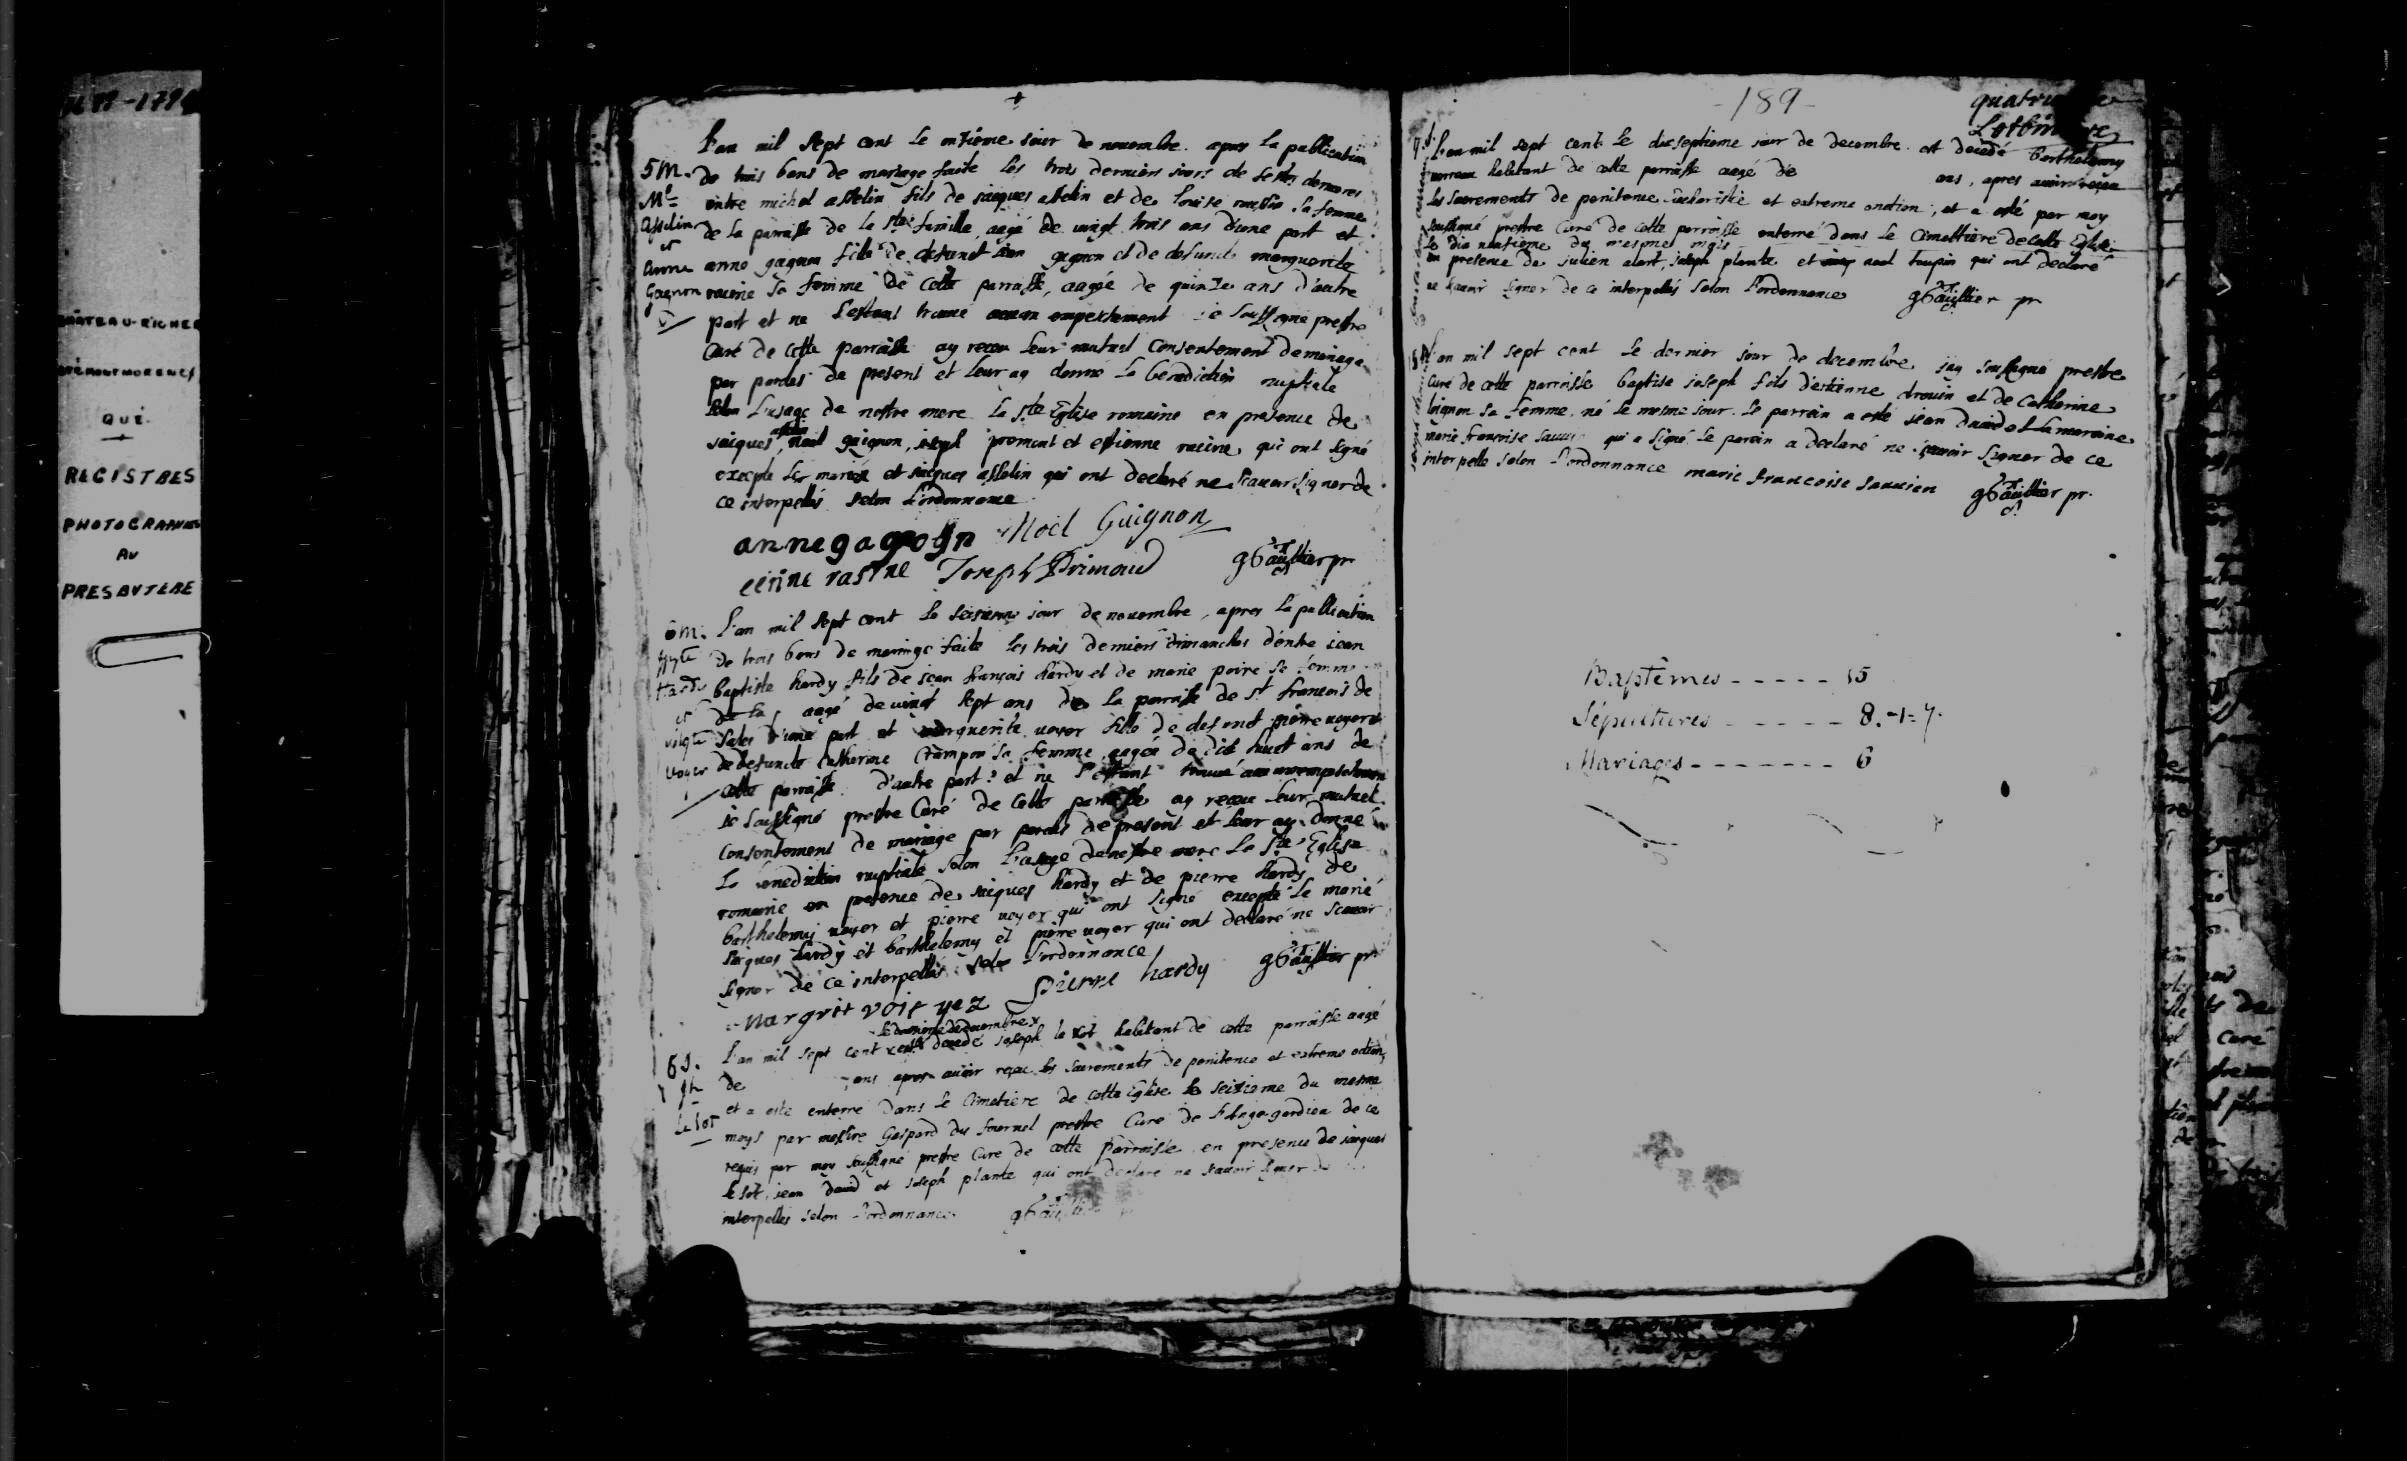 1679-1790
CHÂTEAU-RICHER
MONTMORENCY
QUÉ.
REGISTRES
PHOTOGRAPHIÉS
AU
PRESBYTERE
+
L'an mil sept cent le onzième jour de novembre apres la publication
5 M. de trois bans de mariage faite les trois derniers jours de festes
Mel entre michel asselin fils de jacques asselin et de louise sa femme
asselin de la parroisse de la ste famille, aagé de vingt trois ans d'une part et
et
anne anne gagnon fille de defunct jean gagnon et de defuncte marguerite
Gagnon racine sa femme de cette parroisse, aagée de quinze ans d'autre
part et ne s'estant trouvé aucun empeschement je soussigné prestre
Curé de cette parroisse ay receu leur mutuel Consentement de mariage
par paroles de present et leur ay donné la benediction nuptiale
selon l'usage de nostre mere la ste Eglise romaine en presence de
asselin
jacques, noel guignon, joseph primont et estienne racine qui ont signé
excepté le marié et jacques asselin qui ont declaré ne scavoir signer de
ce interpellés selon l'ordonnance
anne gagnogn Noël Guignon
etine rasine Joseph Primaud gGaultier pr
6 M. L'an mil sept cent le seizieme jour de novembre, apres la publication
de trois bans de mariage faite les trois derniers dimanches d'entre jean
Hardy baptiste hardy fils de jean françois hardy et de marie poire sa femme
et de la aagé de vingt sept ans de la parroisse de st francois de
Sales d'une part et marguerite voyer fille de defunct pierre voyer et
voyer de defuncte Catherine Crampon sa femme aagée de dix huit ans de
cette parroisse d'autre part; et ne s'estant trouvé aucun empeschement
je soussigné prestre Curé de cette parroisse ay receu leur mutuel
Consentement de mariage par paroles de present et leur ay donné
la benediction nuptiale selon l'usage de nostre mere la ste Eglise
romaine en presence de jacques hardy et de pierre hardy de
barthelemy voyer et pierre voyer qui ont signé excepté le marié
jacques hardy et barthelemy et pierre voyer qui ont declaré ne scavoir
signer de ce interpellés selon l'ordonnance
Margrit voie yez Pierre hardy gGaultier pr
novembre
6 S. L'an mil sept cent est decedé joseph le sot habitant de cette parroisse aagé
Jh de ans apres avoir reçeu les sacrements de penitence et extreme onction,
et a esté enterré dans le Cimetiere de cette Eglise le seizieme du mesme
Le sot moys par messire Gaspard du fournel prestre Curé de l'Ange-gardien de ce
requis par moy soussigné prestre Curé de cette parroisse en presence de jacques
le sot, jean david et joseph plante qui ont declaré ne scavoir signer de
interpellés selon l'ordonnance. gGaultier
-189-
L'an mil sept cent le dix septieme jour de decembre est decedé barthelemy
habitant de cette parroisse aagé de ans, apres avoir reçeu
les sacrements de penitence eucharistie et extreme onction, et a esté par moy
soussigné prestre Curé de cette parroisse enterré dans le Cimettiere de cette Eglise
le dix neufieme du mesme mois
en presence de julien alart, joseph plante et noel toupin qui ont declaré
ne scavoir signer de ce interpellés selon l'ordonnance gGaultier pr
L'an mil sept cent le dernier jour de decembre jay soussigné prestre
Curé de cette parroisse baptisé joseph fils d'estienne drouin et de Catherine
loignon sa femme, né le mesme jour. Le parrain a esté jean david et la maraine
marie francoise qui a signé. Le parain a declaré ne scavoir signer de ce
interpellé selon l'ordonnance marie francoise sauuien gGaultier pr.
Baptêmes ----- 15
Sépultures ----- 8.-1=7.
Mariages ------- 6